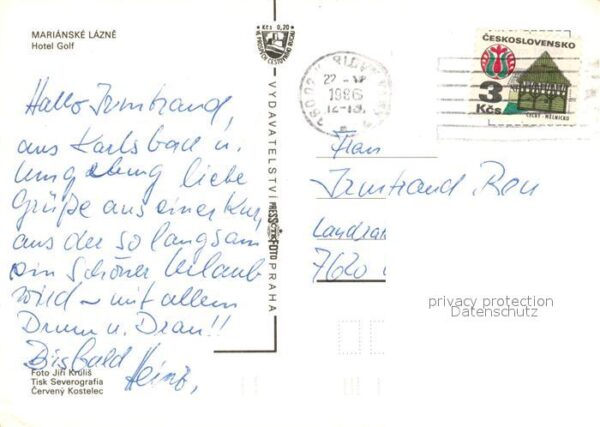 MARIÁNSKÉ LÁZNĚ
Hotel Golf
Kčs 0,20
VE PROSPĚCH CESTOVNÍHO RUCHU
Hallo Irmtraud,
aus Karlsbad u.
Umgebung liebe
Grüße aus einer Kur,
aus der so langsam
ein schöner Urlaub
wird – mit allem
Drum u. Dran!!
Bis bald
Heinz,
Foto Jiří Kruliš
Tisk Severografia
Červený Kostelec
VYDAVATELSTVÍ PRESSFOTO PRAHA
1986
ČESKOSLOVENSKO
3
Kčs
ČECHY - MĚLNICKO
Frau
Irmtraud
7620
privacy protection
Datenschutz